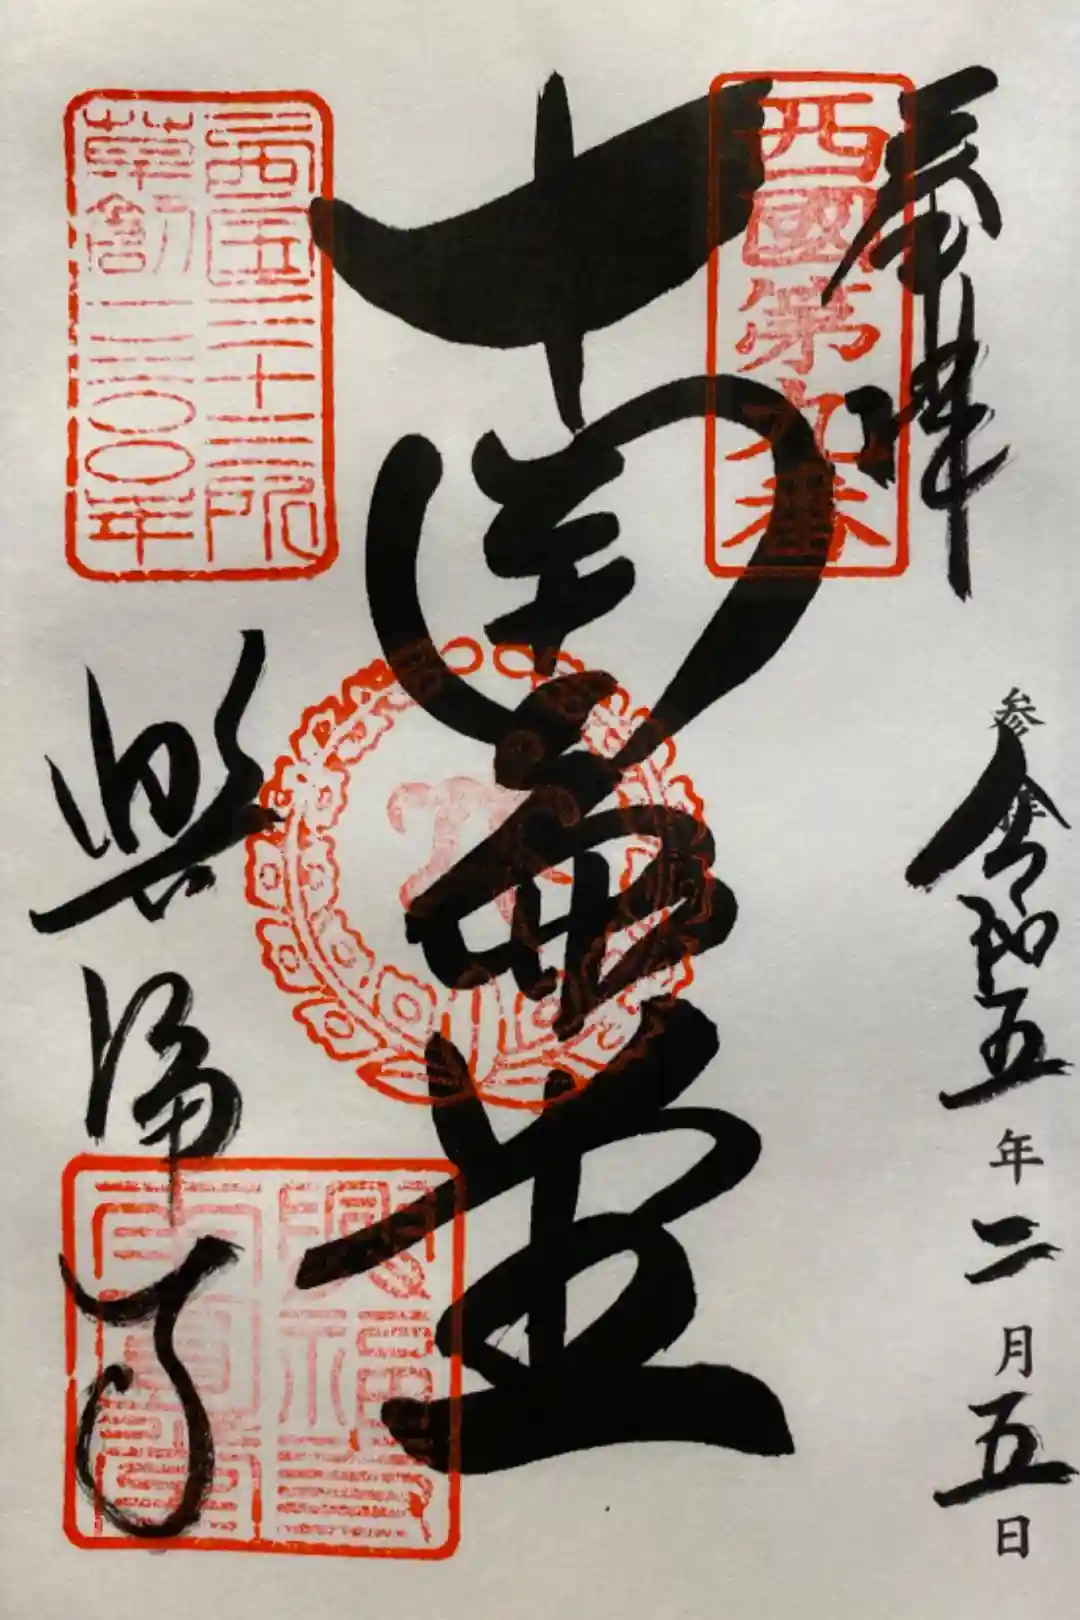 奉拝
西國第九番
参拝
令和五年二月五日
南無堂
西国三十三所
草創一三〇〇年
興福寺